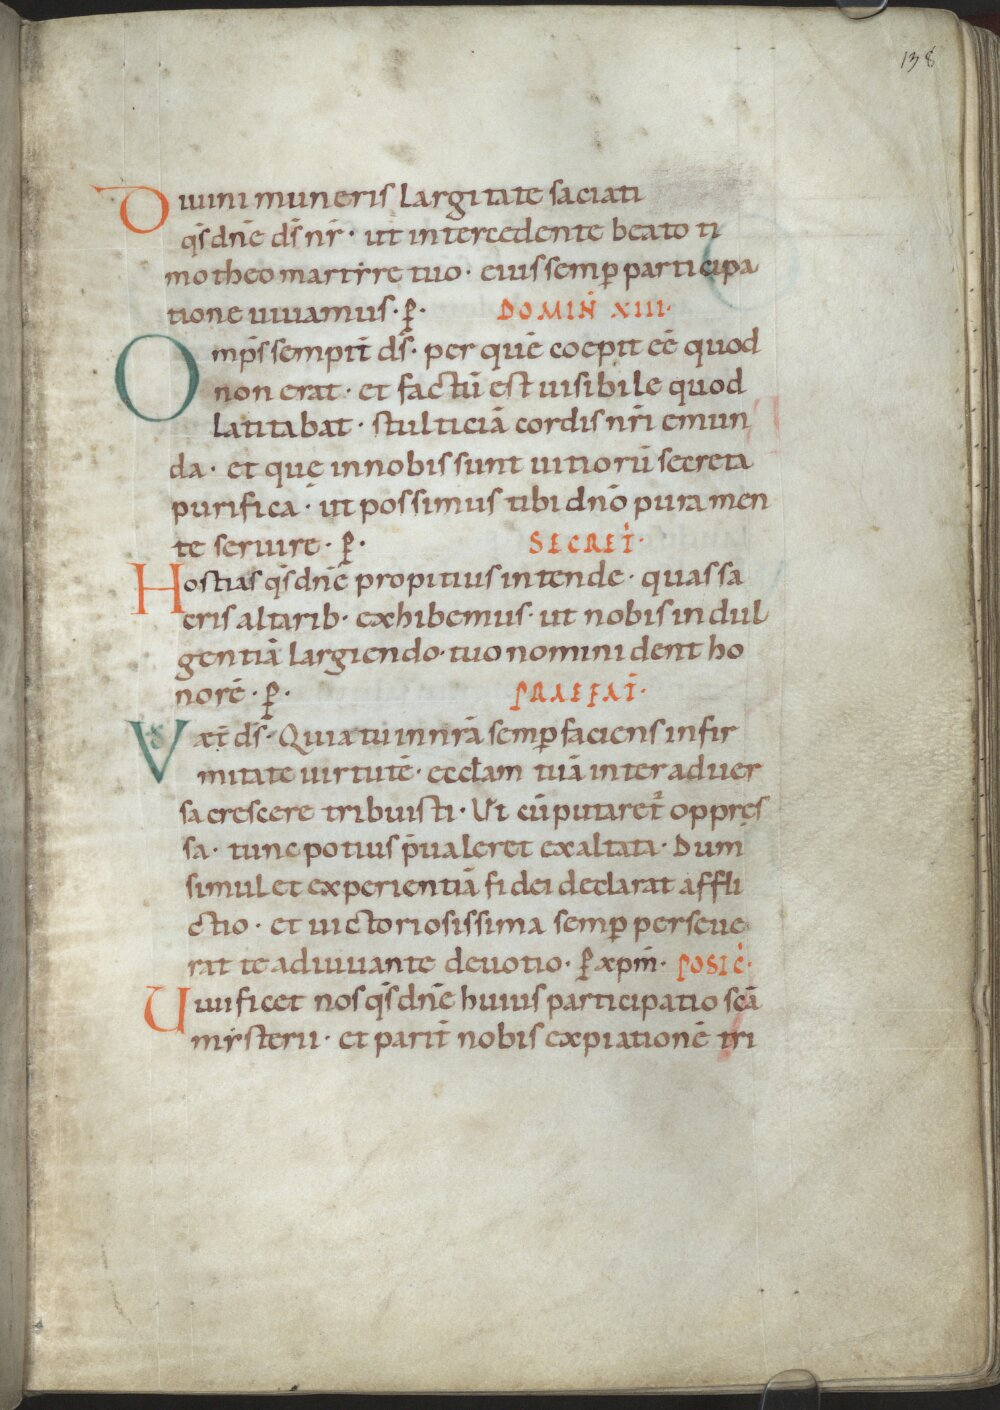 138
Diuini muneris largitate saciati
qs̄ dn̄e ds̄ nr̄· ut intercedente beato ti
motheo martyre tuo· eius semꝑ participa
tione uiuamus· ꝑ· DOMIN̄ XIII·
Omp̄s sempit̄ ds̄· per quē coepit eē quod
non erat· et factū est uisibile quod
latitabat· stulticiā cordis nr̄i emun
da· et que in nobis sunt uitiorū secreta
purifica· ut possimus tibi dn̄o pura men
te seruire· ꝑ· SECRET̄·
Hostias qs̄ dn̄e propitius intende· quas sa
cris altarib· exhibemus· ut nobis indul
gentiā largiendo· tuo nomini dent ho
norē· ꝑ· PRAEFAT̄·
Vaet̄ ds̄· Quia tu in nr̄ā semꝑ faciens infir
mitate uirtutē· eccl̄am tuā inter aduer
sa crescere tribuisti· Ut cū putaret̄ oppres
sa· tunc potius p̄ualeret exaltata· Dum
simul et experientiā fidei declarat affli
ctio· et uictoriosissima semꝑ perseue
rat te adiuuante deuotio· ꝑ xp̄m· POSTC̄·
Uiuificet nos qs̄ dn̄e huius participatio sc̄ā
mysterii· et parit̄ nobis expiationē tri